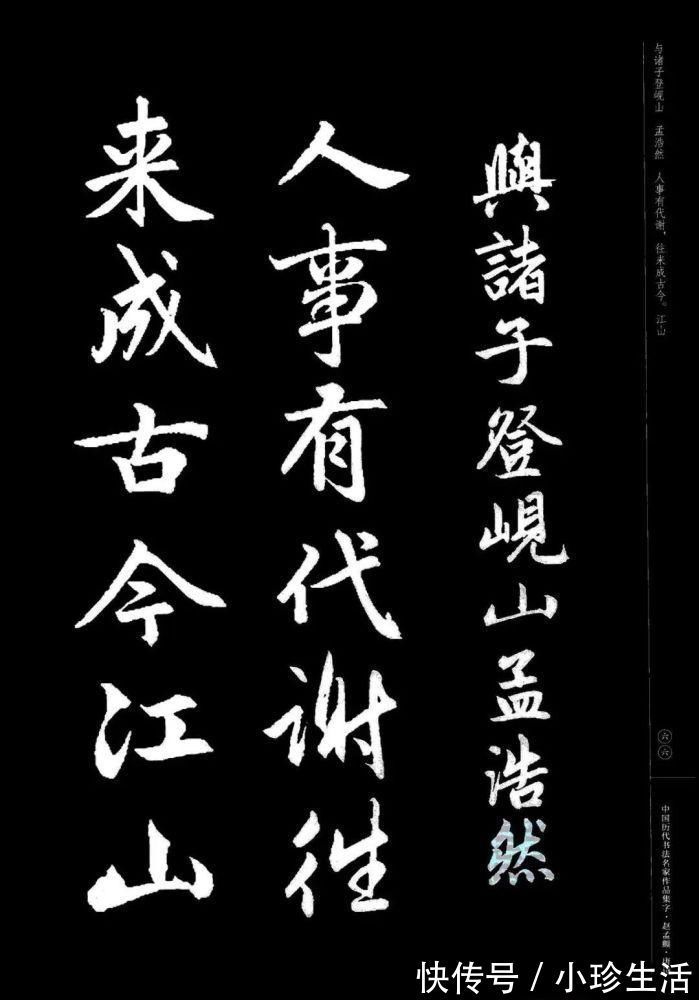 与诸子登岘山 孟浩然 人事有代谢，往来成古今。江山
與諸子登峴山孟浩然
人事有代谢往
来成古今江山
六六
中国历代书法名家作品集字·赵孟頫·唐
快传号／小珍生活